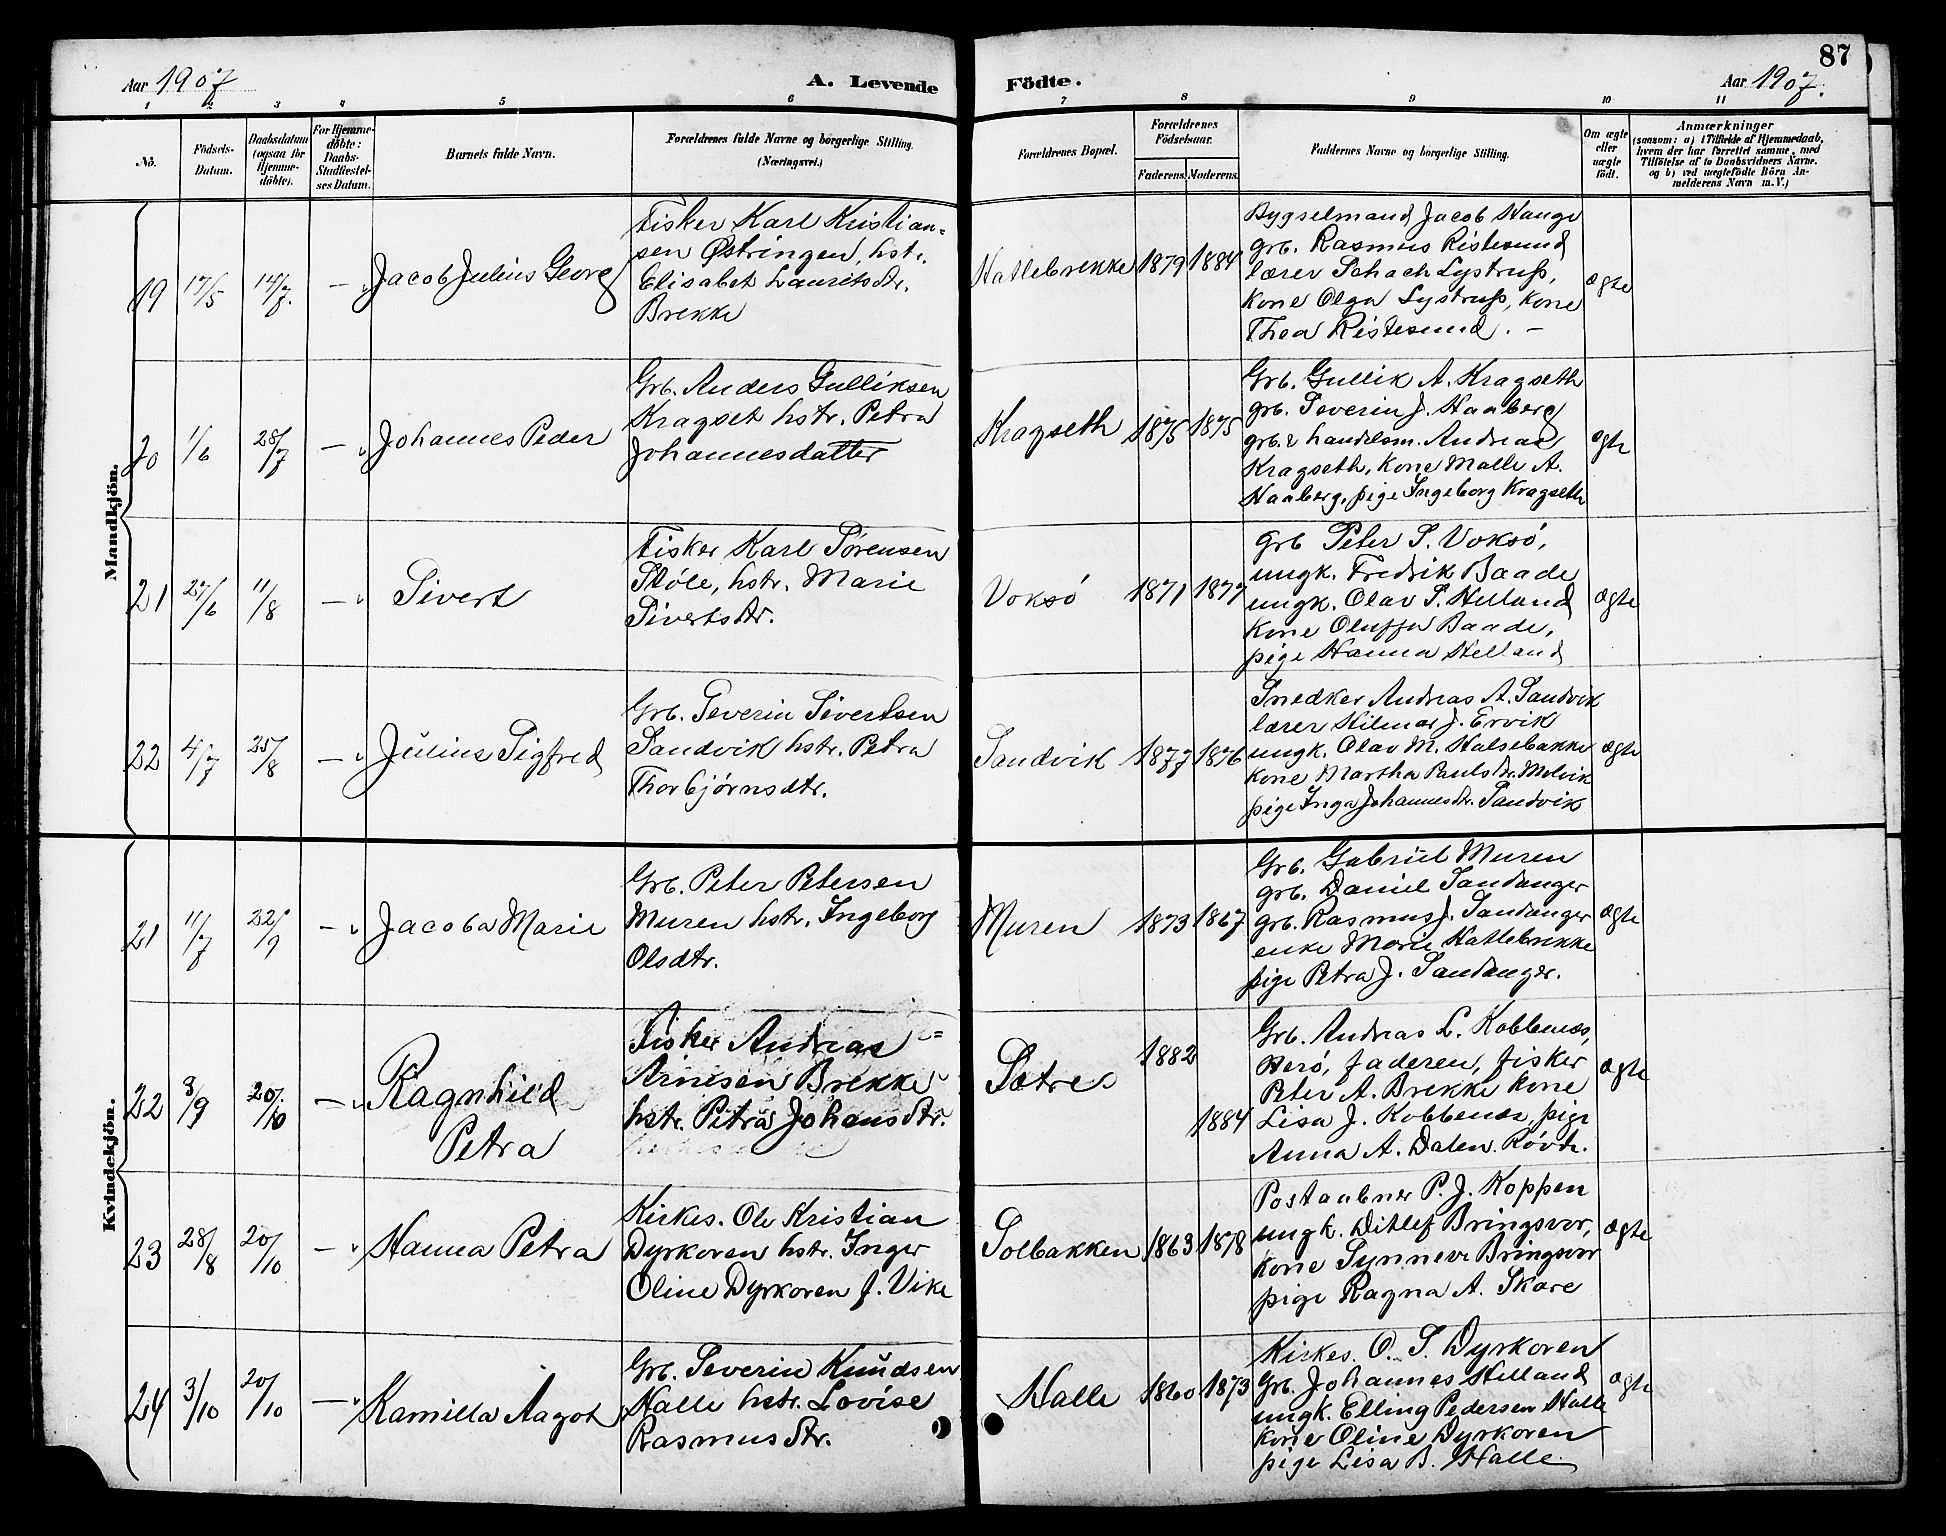 87
Aar 1907
A. Levende Födte.
Aar 1907.
1 2 3 4 5 6 7 8 9 10 11
No.
Födsels-
Datum.
Daabsdatum
(ogsaa for
Hjemme-
döbte).
For Hjemme-
döbte:
Daabs-
Stadfæstel-
ses Datum.
Barnets fulde Navn.
Forældrenes fulde Navne og borgerlige Stilling.
(Næringsvei.)
Forældrenes Bopæl.
Forældrenes
Födselsaar.
Faderens. Moderens.
Faddernes Navne og borgerlige Stilling.
Om ægte
eller
uægte
födt.
Anmærkninger
(saasom: a) i Tilfælde af Hjemmedaab,
hvem der har forrettet samme, med
Tilföielse af to Daabsvidners Navne,
og b) ved uægtefödte Börn An-
melderens Navn m.V.)
Mandkjön.
19 17/5 14/7. —
Jacob Julius Georg
Fisker Karl Kristian-
sen Østringen, hstr.
Elisabet Lauritsdtr.
Brekke
Hatlebrekke 1879 1884
Bygselmand Jacob Hauge
grb. Rasmus Ristesund
lærer Schach Lystrup,
kone Olga Lystrup, kone
Thea Ristesund. —
ægte
20 1/6 28/7 —
Johannes Peder
Grb. Anders Gulliksen
Kragset hstr. Petra
Johannesdatter
Kragseth 1875 1875
Grb. Gullik A. Kragseth
grb. Severin J. Haaberg
grb. & handelsm. Andreas
Kragseth, kone Malli A.
Haaberg, pige Ingeborg Kragseth
ægte
21 27/6 11/8 —
Sivert
Fisker Karl Sørensen
Støle, hstr. Marie
Sivertsdtr.
Voksø 1871 1877
Grb Peter S. Voksø,
ungk. Fredrik Baade
ungk. Olav S. Helland
kone Oluffa Baade,
pige Hanna Helland
ægte
22 4/7 25/8 —
Julius Sigfred
Grb. Severin Sivertsen
Sandvik hstr. Petra
Thorbjørnsdtr.
Sandvik 1877 1876
Snedker Andreas A. Sandvik
lærer Hilmar J. Ervik
ungk. Olav M. Halsebakke
kone Martha Paulsdtr. Melvik
pige Inga Johannesdtr. Sandvik
ægte
Kvindekjön.
21 11/7 22/9 —
Jacoba Marie
Grb. Peter Petersen
Muren hstr. Ingeborg
Olsdtr.
Muren 1873 1867
Grb. Gabriel Muren
grb. Daniel Sandanger
grb. Rasmus J. Sandanger
enke Marie Hatlebrekke
pige Petra J. Sandanger.
ægte
22 3/9 20/10 —
Ragnhild
Petra
Fisker Andreas
Arnesen Brekke
hstr. Petra Johansdtr.
Sætre 1882
1884
Grb. Andreas L. Kobbenæs,
Herø, faderen, fisker
Peter A. Brekke kone
Lisa J. Kobbenæs pige
Anna A. Dalen Røvde.
ægte
23 28/8 20/10 —
Hanna Petra
Kirkes. Ole Kristian
Dyrkoren hstr. Inger
Oline Dyrkoren f. Vike
Solbakken 1863 1878
Postaabner P. J. Koppen
ungk. Ditlef Bringsvor,
kone Synneve Bringsvor
pige Ragna A. Skare
ægte
24 3/10 20/10 —
Kamilla Aagot
Grb. Severin Knudsen
Halle hstr. Lovise
Rasmusdtr.
Halle 1860 1873
Kirkes. O. S. Dyrkoren
Grb. Johannes Helland
ungk. Elling Pedersen Halle
kone Oline Dyrkoren
pige Lisa B. Halle
ægte